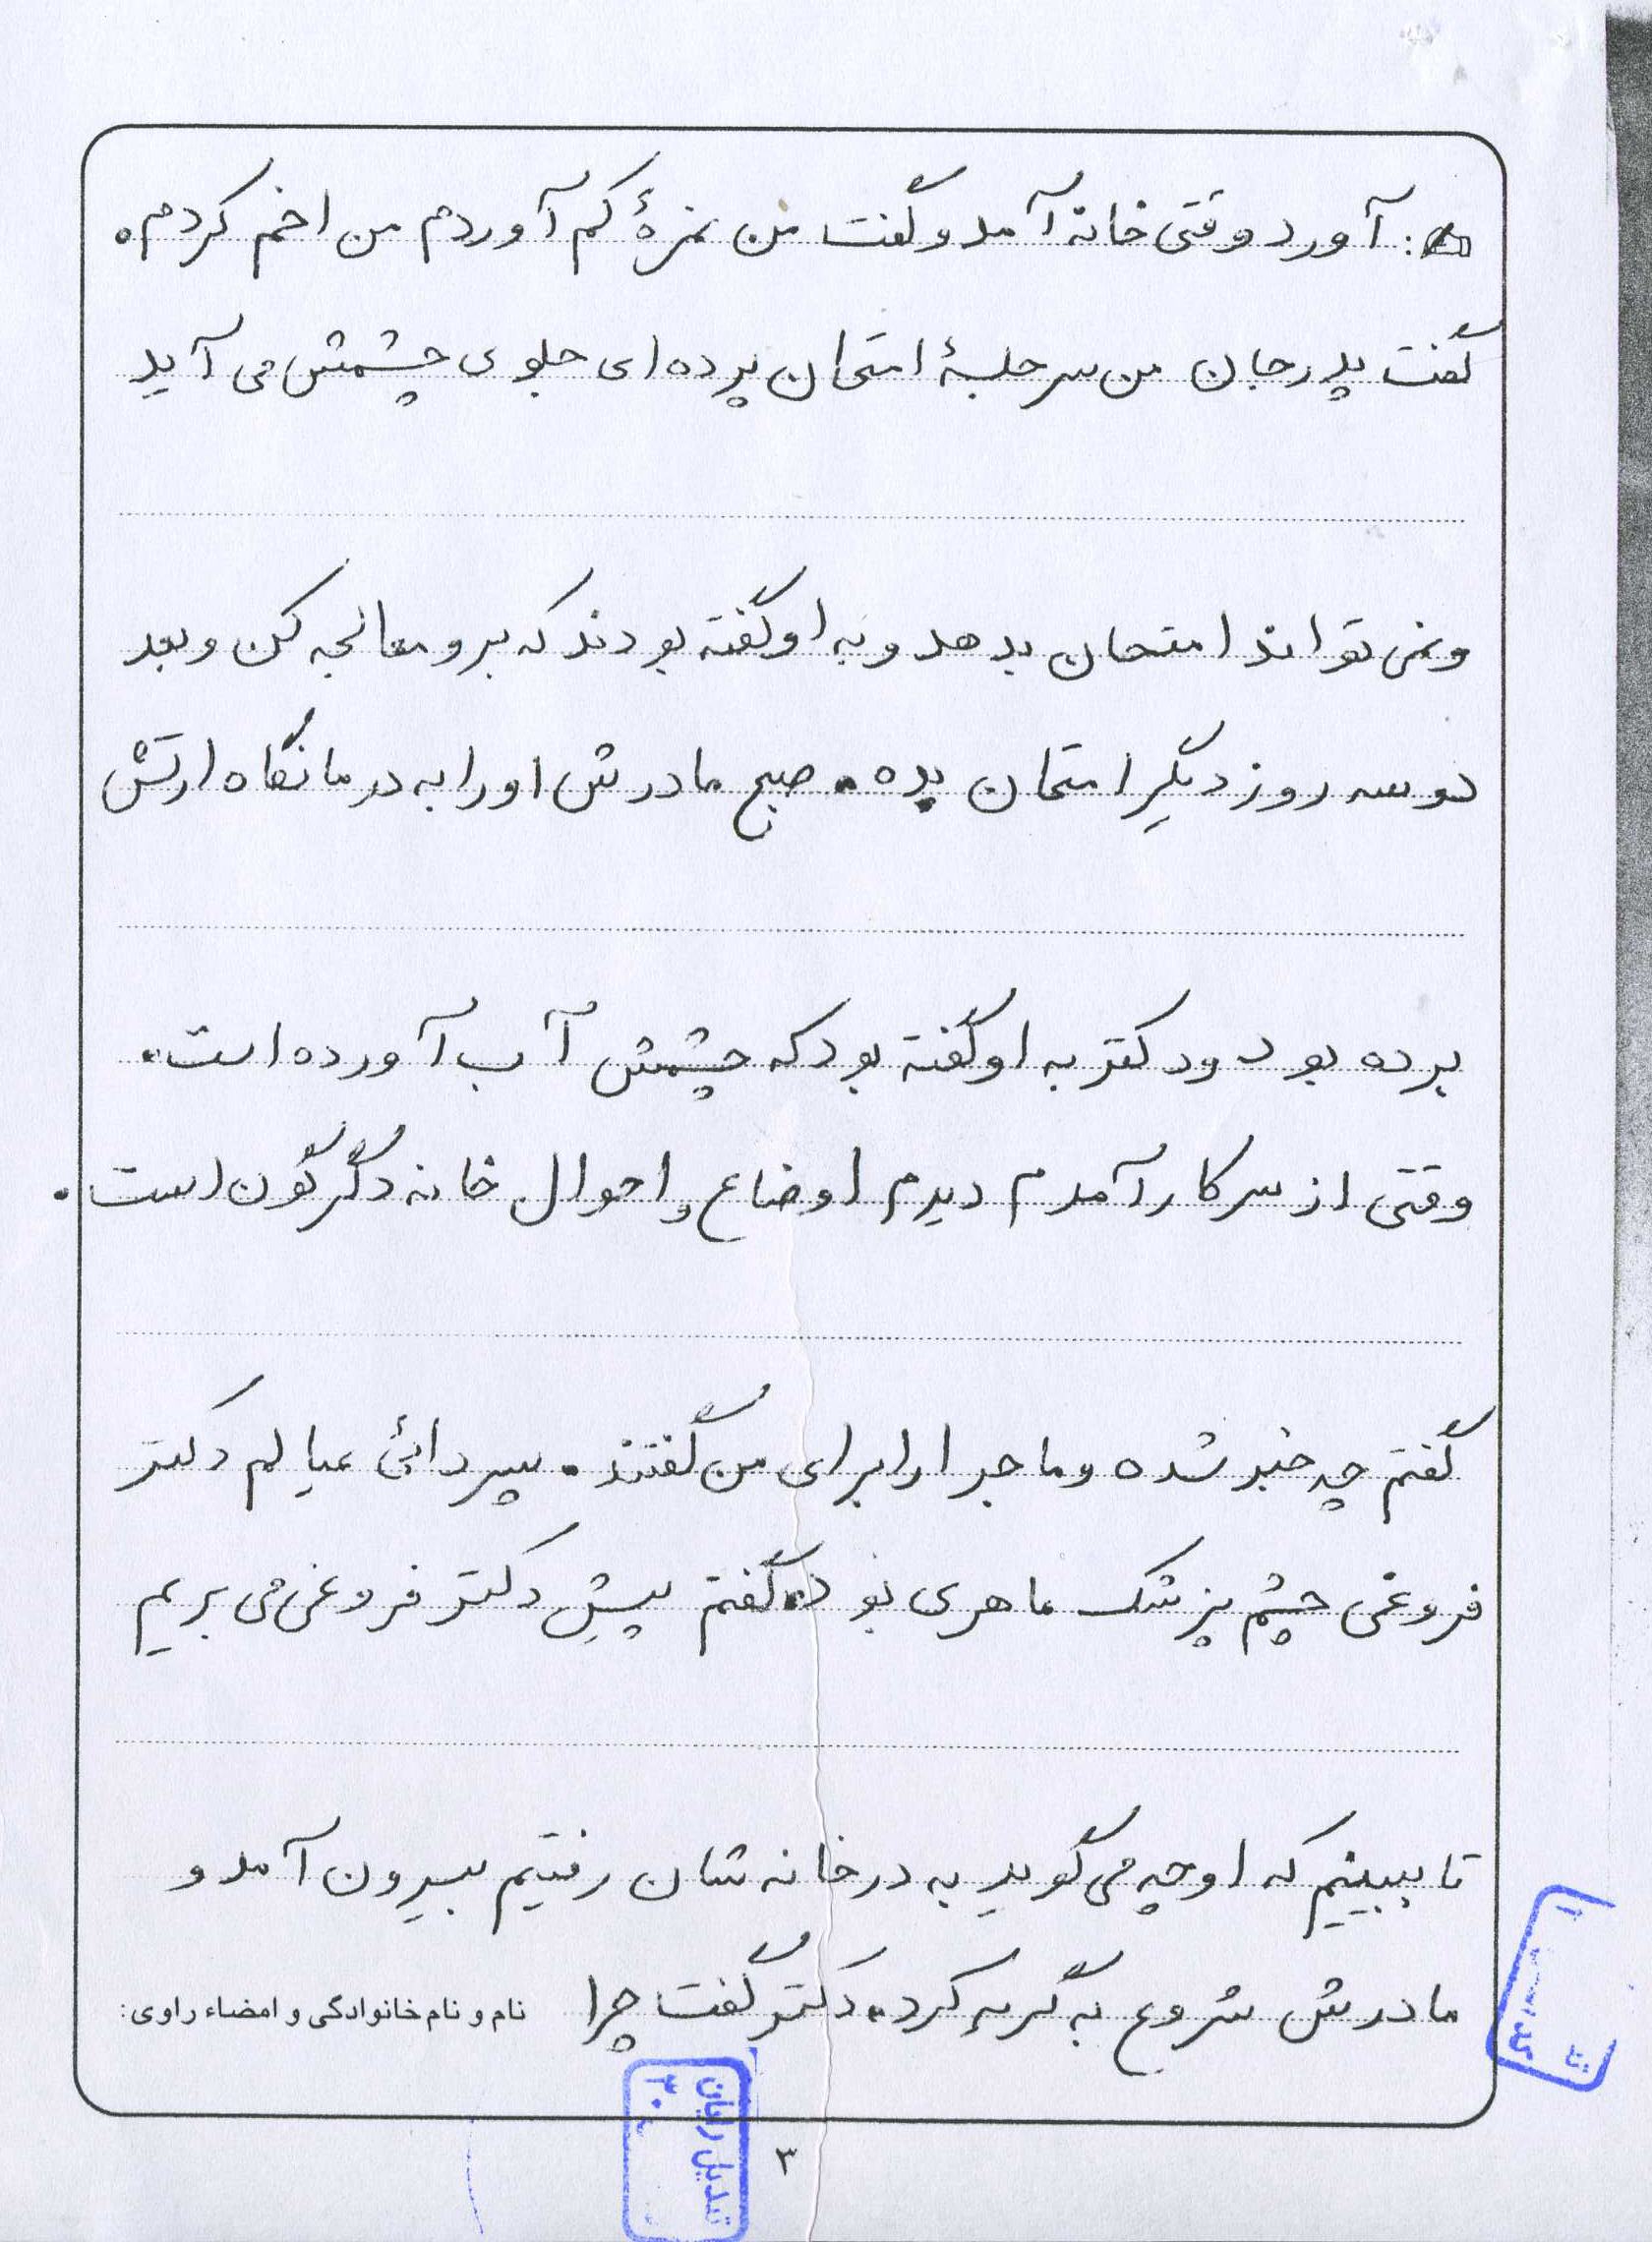 : آورد وقتی خانه آمد و گفت من نمرهٔ کم آوردم من اخم کردم.
گفت پدر جان من سر جلسهٔ امتحان پرده‌ای جلوی چشمش می آید
و نمی تواند امتحان بدهد و به او گفته بودند که برو معالجه کن و بعد
دو سه روز دیگر امتحان بده. صبح مادرش او را به درمانگاه ارتش
برده بود و دکتر به او گفته بود که چشمش آب آورده است.
وقتی از سر کار آمدم دیدم اوضاع و احوال خانه دگرگون است.
گفتم چه خبر شده و ماجرا را برای من گفتند. پسر دائی عیالم دکتر
فروغی چشم پزشک ماهری بود. گفتم پیش دکتر فروغی می بریم
تا ببینیم که او چه می گوید به در خانه شان رفتیم بیرون آمد و
مادرش شروع به گریه کرد. دکتر گفت چرا
نام و نام خانوادگی و امضاء راوی:
۳